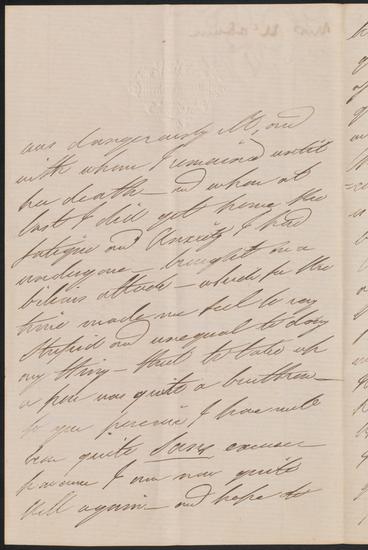 was dangerously ill, and
with whom I remained until
her death — and when at
last I did get home the
fatigue and anxiety I had
undergone — brought on a
bilious attack — which for the
time made me feel so very
stupid and unequal to doing
any thing — that to take up
a pen was quite a burthen —
so you perceive I have not
been quite sans excuse
however I am now quite
well again — and hope to